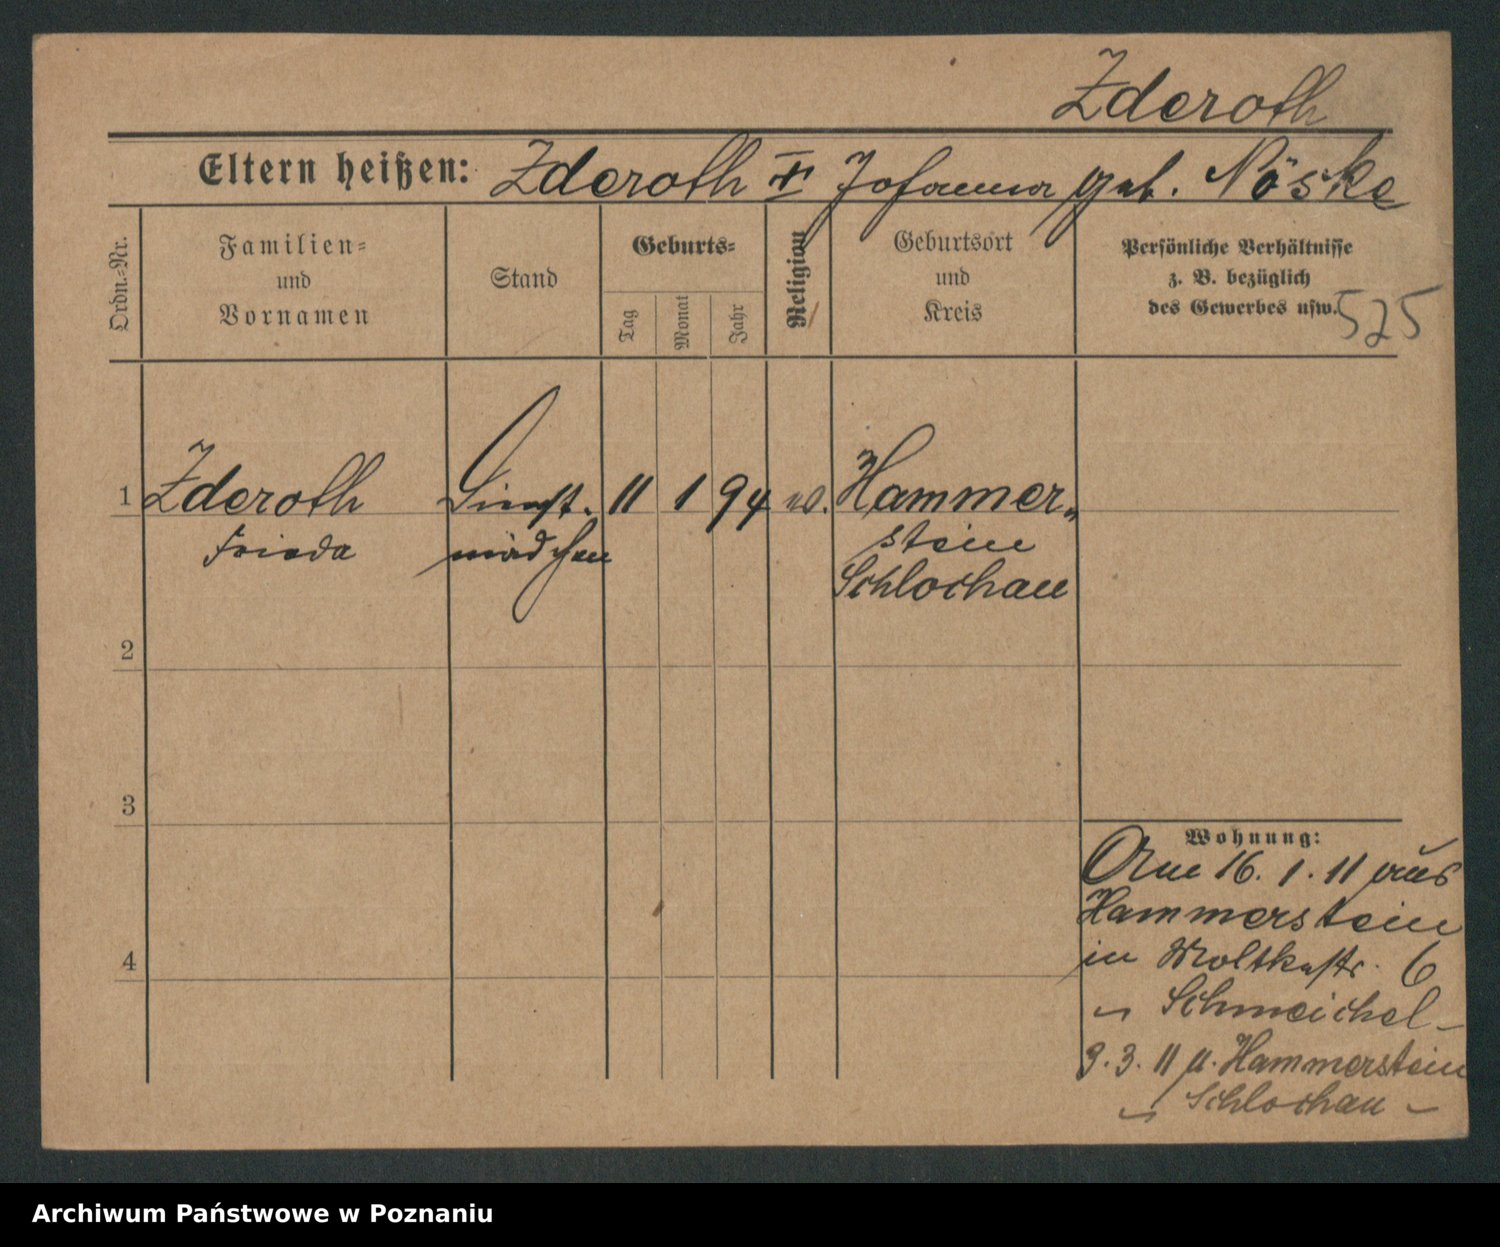 Zderoth
Eltern heißen: Zderoth ✝ Johanna geb. Nöske
Ordn.-Nr.
Familien-
und
Vornamen
Stand
Geburts-
Tag
Monat
Jahr
Religion
Geburtsort
und
Kreis
Persönliche Verhältnisse
z. B. bezüglich
des Gewerbes usw.
525
1 Zderoth Dienst- 11 1 94 ev. Hammer-
Frieda mädchen stein
Schlochau
2
3
4
Wohnung:
Am 16. 1. 11 aus
Hammerstein
in Moltkestr. 6
Schmeichel -
9. 3. 11 n. Hammerstein
Schlochau -
Archiwum Państwowe w Poznaniu